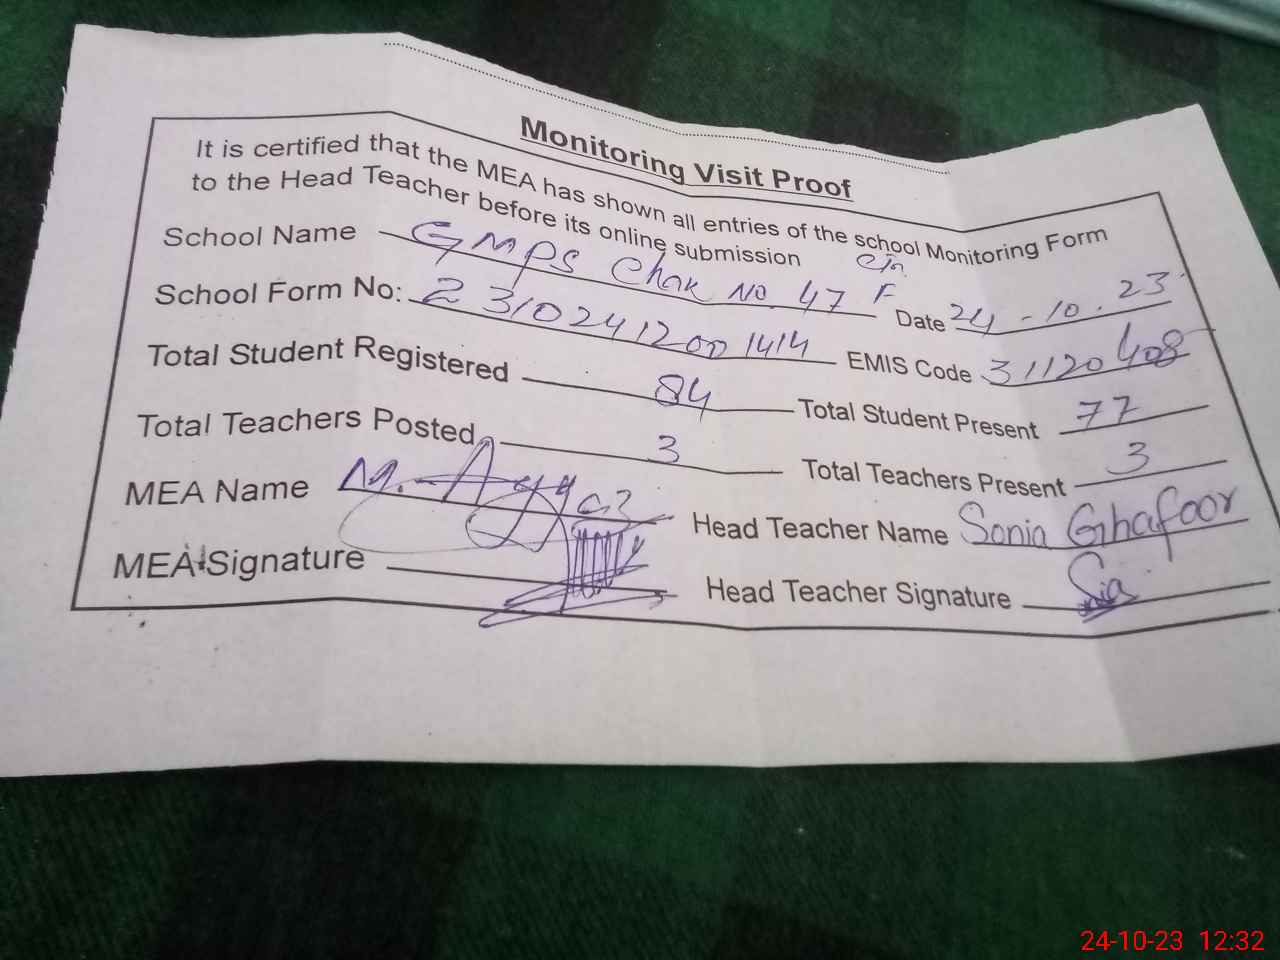 Monitoring Visit Proof
It is certified that the MEA has shown all entries of the school Monitoring Form
to the Head Teacher before its online submission
School Name GMPS Chak No 47 F Date 24-10.23
School Form No: 2310241200 1414 EMIS Code 31120408
Total Student Registered 84 Total Student Present 77
Total Teachers Posted 3 Total Teachers Present 3
MEA Name M. Head Teacher Name Sonia Ghafoor
MEA Signature Head Teacher Signature
24-10-23 12:32